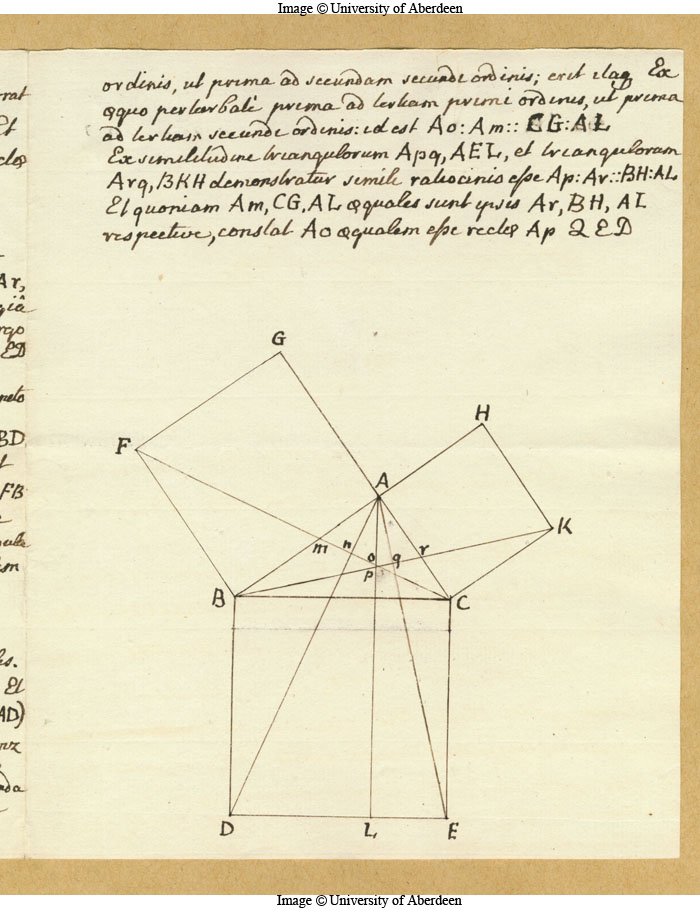 Image © University of Aberdeen
ordinis, ut prima ad secundam secundi ordinis; erit itaq Ex
æquo perturbatè prima ad tertiam primi ordinis, ut prima
ad tertiam secundi ordinis: id est Ao: Am:: CG: AL
Ex similitudine triangulorum Apq, AEL, et triangulorum
Arq, BKH demonstratur simili ratiocinio esse Ap: Ar:: BH: AL
Et quoniam Am, CG, AL æquales sunt ipsis Ar, BH, AL
respective, constat Ao æqualem esse rectæ Ap Q E D
rrat
Et
Ar,
giâ
rgo
ED
BD
FB
Et
AD)
G
H
F
A
K
m n o q r
p
B C
D L E
Image © University of Aberdeen